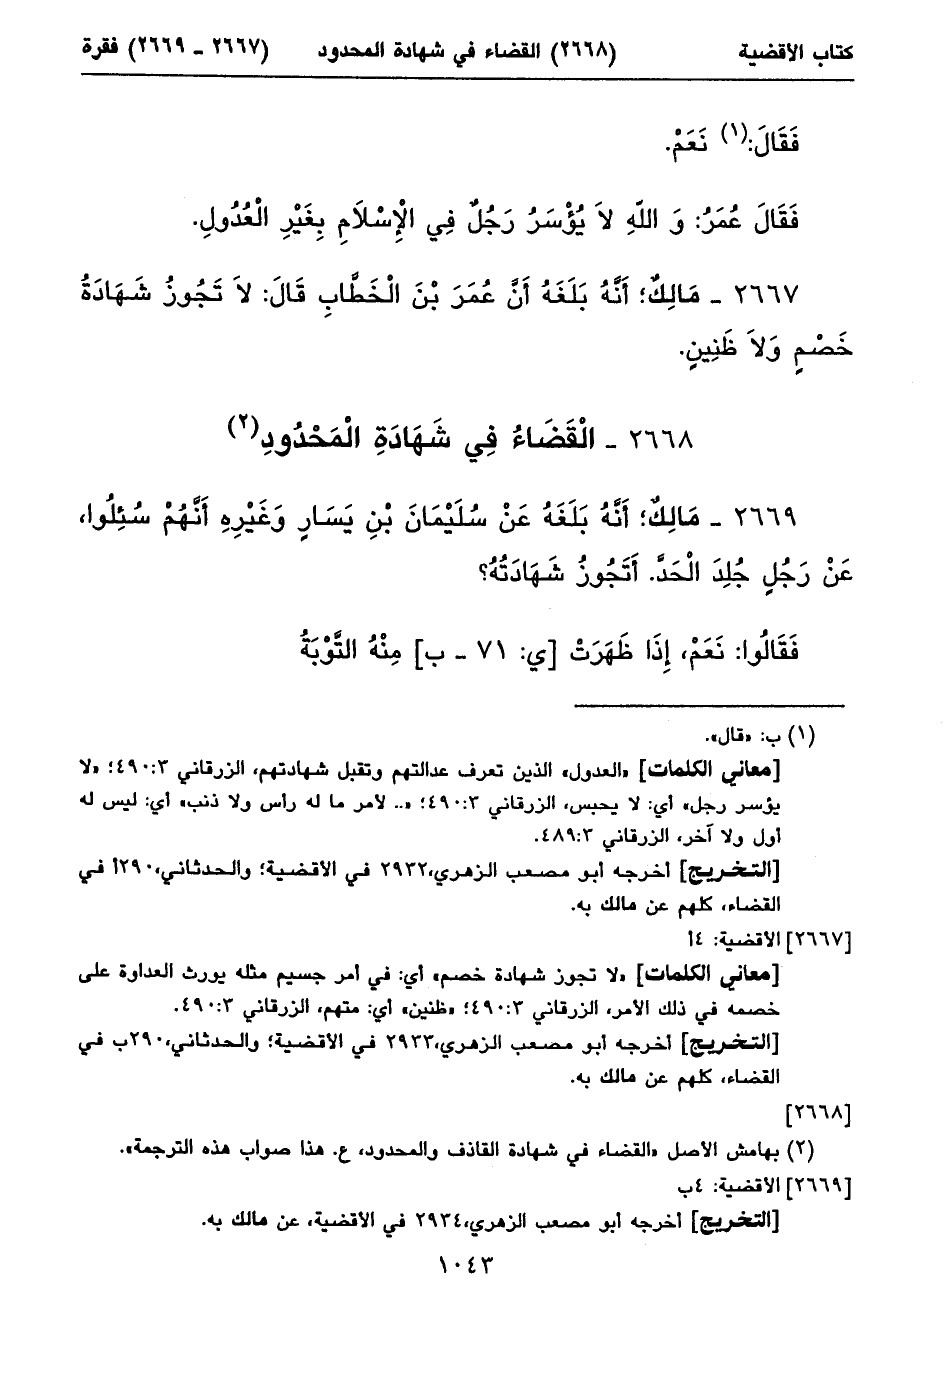 كتاب الأقضية (٢٦٦٨) القضاء في شهادة المحدود (٢٦٦٧ - ٢٦٦٩) فقرة
فَقَالَ:(١) نَعَمْ.
فَقَالَ عُمَرُ: وَ اللّهِ لاَ يُؤْسَرُ رَجُلٌ فِي الْإِسْلَامِ بِغَيْرِ الْعُدُولِ.
٢٦٦٧ - مَالِكٌ؛ أَنَّهُ بَلَغَهُ أَنَّ عُمَرَ بْنَ الْخَطَّابِ قَالَ: لاَ تَجُوزُ شَهَادَةُ
خَصْمٍ وَلاَ ظَنِينٍ.
٢٦٦٨ - الْقَضَاءُ فِي شَهَادَةِ الْمَحْدُودِ(٢)
٢٦٦٩ - مَالِكٌ؛ أَنَّهُ بَلَغَهُ عَنْ سُلَيْمَانَ بْنِ يَسَارٍ وَغَيْرِهِ أَنَّهُمْ سُئِلُوا،
عَنْ رَجُلٍ جُلِدَ الْحَدَّ. أَتَجُوزُ شَهَادَتُهُ؟
فَقَالُوا: نَعَمْ، إِذَا ظَهَرَتْ [ي: ٧١ - ب] مِنْهُ التَّوْبَةُ
(١) ب: «قال».
[معاني الكلمات] «العدول» الذين تعرف عدالتهم وتقبل شهادتهم، الزرقاني ٤٩٠:٣؛ «لا
يؤسر رجل» أي: لا يحبس، الزرقاني ٤٩٠:٣؛ «.. لأمر ما له رأس ولا ذنب» أي: ليس له
أول ولا آخر، الزرقاني ٤٨٩:٣.
[التخريج] أخرجه أبو مصعب الزهري،٢٩٣٢ في الأقضية؛ والحدثاني،٢٩٠أ في
القضاء، كلهم عن مالك به.
[٢٦٦٧] الأقضية: ٤أ
[معاني الكلمات] «لا تجوز شهادة خصم» أي: في أمر جسيم مثله يورث العداوة على
خصمه في ذلك الأمر، الزرقاني ٤٩٠:٣؛ «ظنين» أي: متهم، الزرقاني ٤٩٠:٣.
[التخريج] أخرجه أبو مصعب الزهري،٢٩٣٣ في الأقضية؛ والحدثاني،٢٩٠ب في
القضاء، كلهم عن مالك به.
[٢٦٦٨]
(٢) بهامش الأصل «القضاء في شهادة القاذف والمحدود، ع. هذا صواب هذه الترجمة».
[٢٦٦٩] الأقضية: ٤ب
[التخريج] أخرجه أبو مصعب الزهري،٢٩٣٤ في الأقضية، عن مالك به.
١٠٤٣